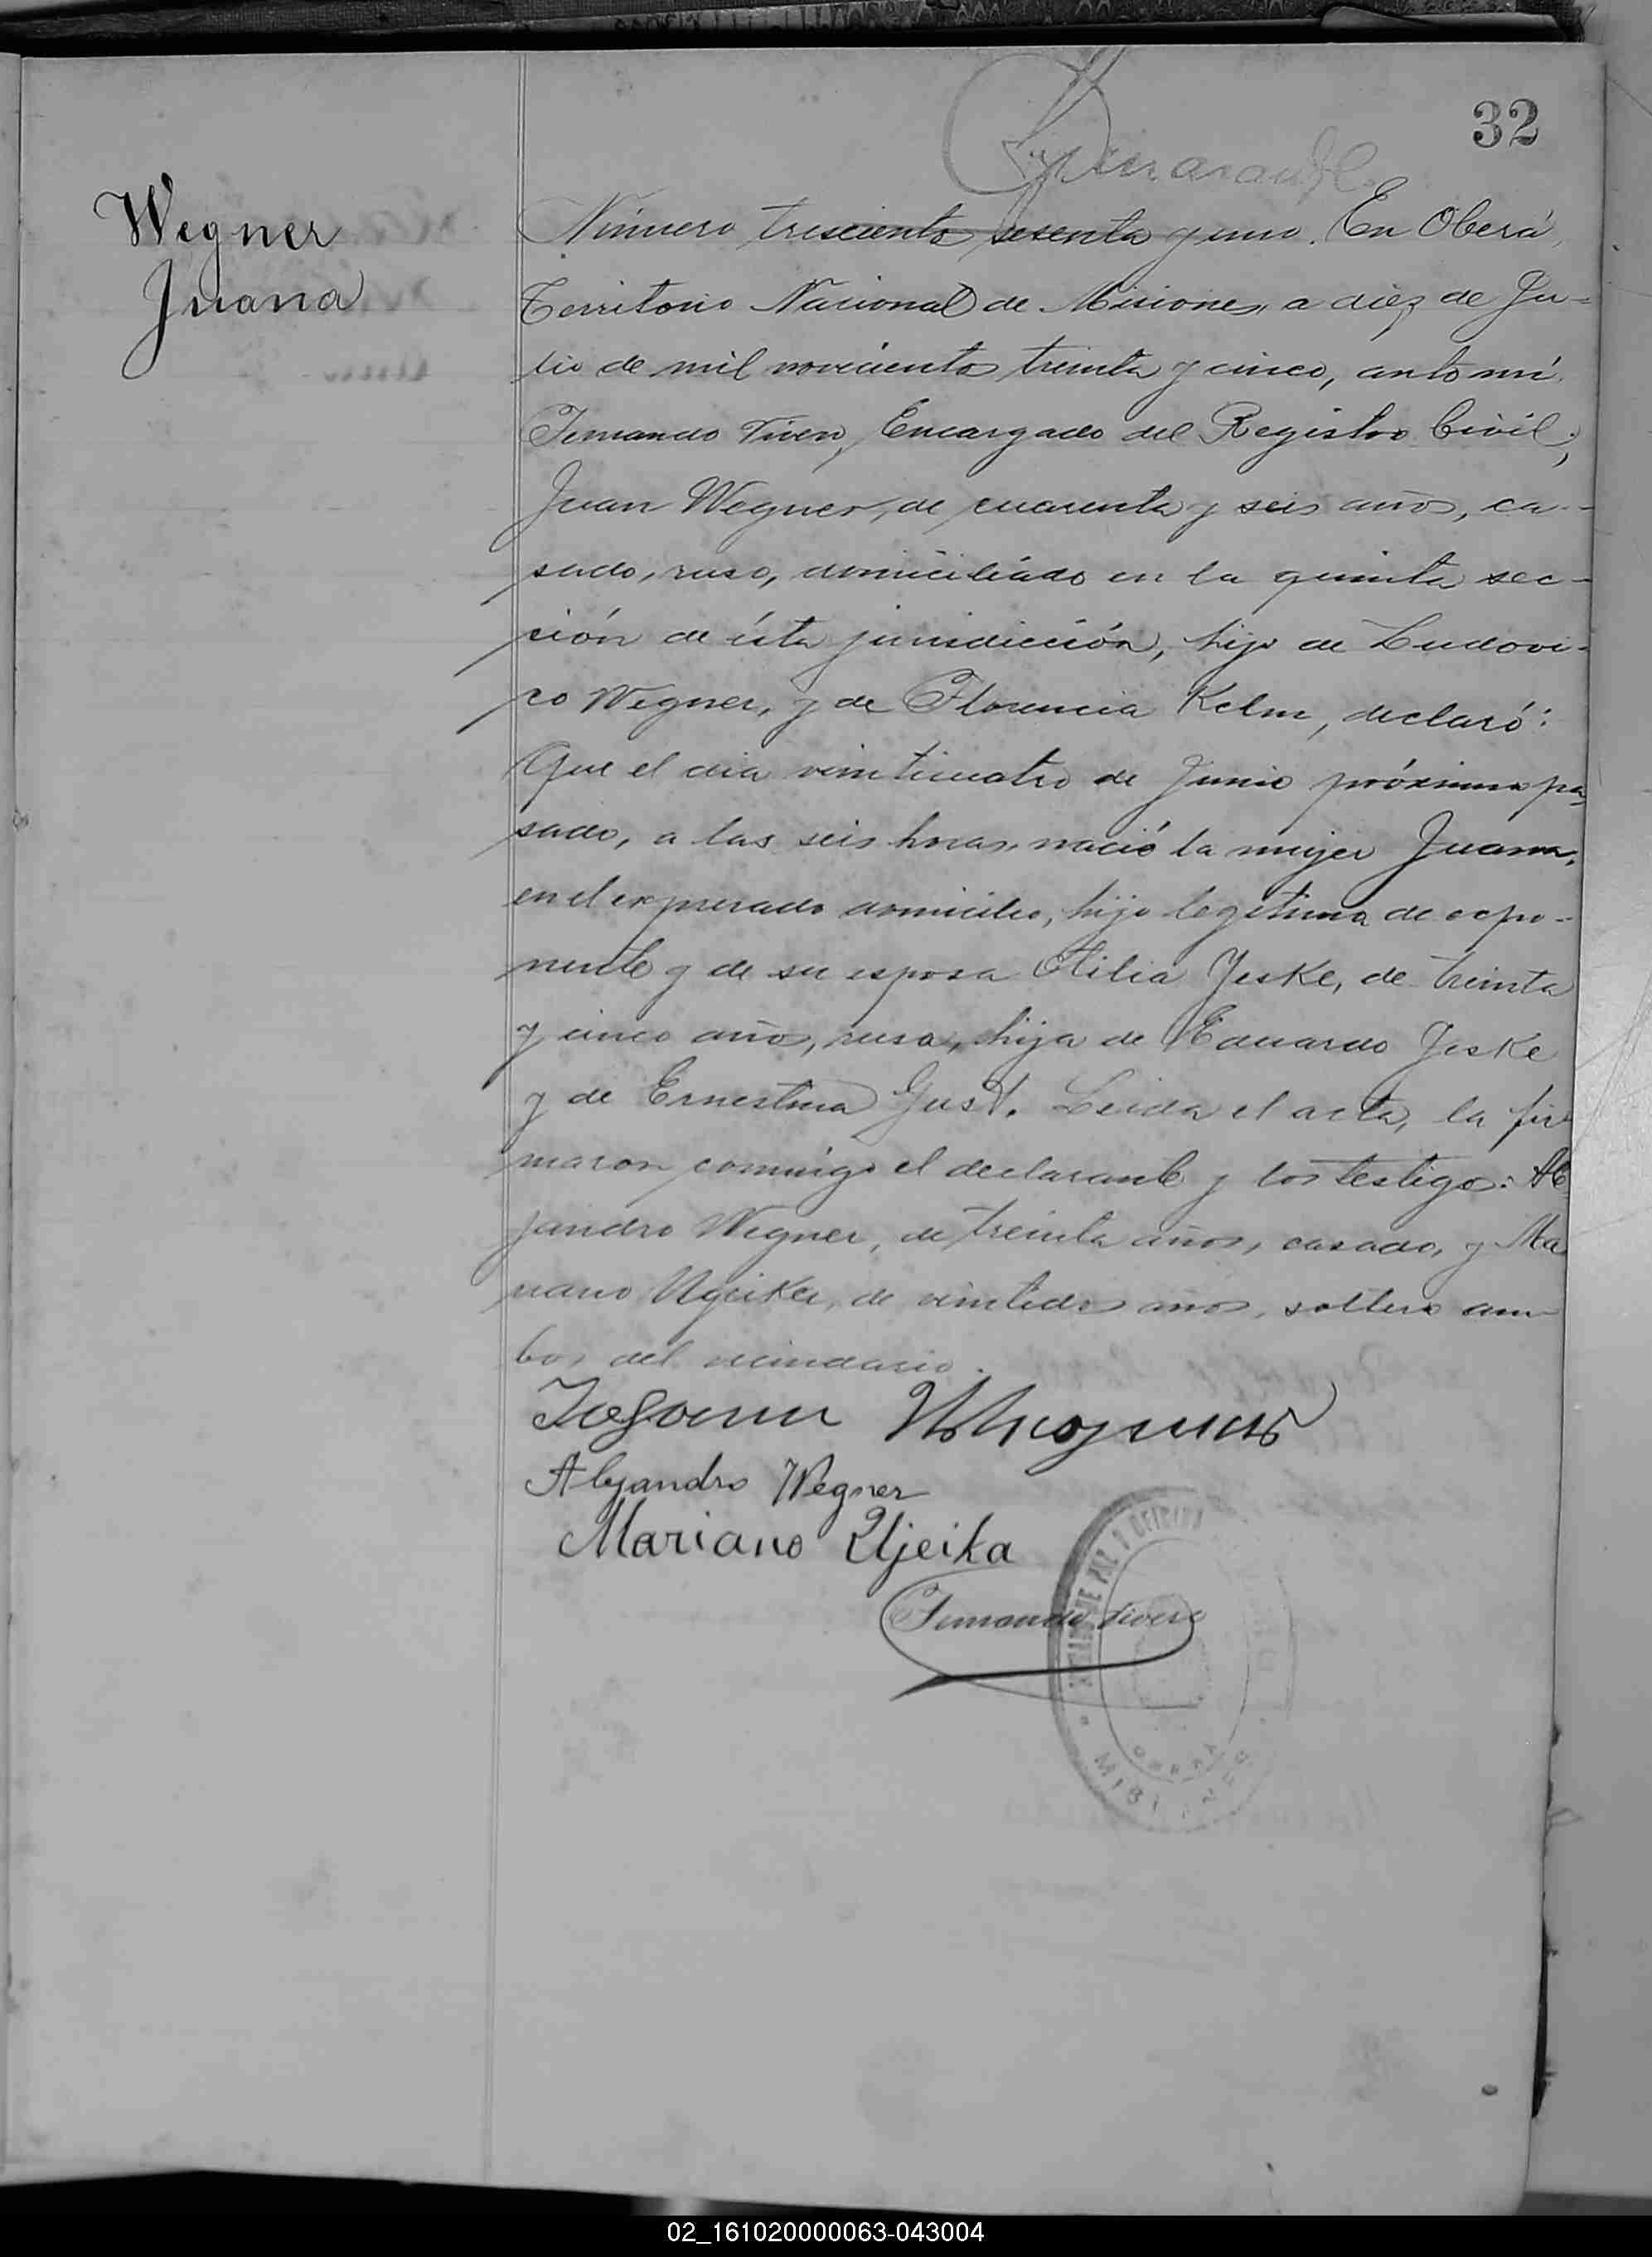 32
Wegner
Juana
Número tresciento sesenta y uno. En Oberá,
Territorio Nacional de Misiones, a diez de Ju-
lio de mil noveciento treinta y cinco, ante mí
Fernando Tivero, Encargado del Registro Civil;
Juan Wegner, de cuarenta y seis años, ca-
sado, ruso, domiciliado en la quinta sec-
ción de ésta jurisdicción, hijo de Ludovi-
co Wegner, y de Florencia Kelm, declaró:
Que el día veinticuatro de Junio próximo pa-
sado, a las seis horas, nació la mujer Juana,
en el expresado domicilio, hija legítima de expo-
nente y de su esposa Otilia Jeske, de treinta
y cinco año, rusa, hija de Eduardo Jeske
y de Ernestina Gust. Leida el acta, la fir
maron conmigo el declarante y los testigo: Ale
jandro Wegner, de treinta años, casado, y Ma
riano Ujeika, de veintidos años, soltero am
bos del vecindario.
Alejandro Wegner
Mariano Ujeika
Fernando Tivero
OBERA
MISIONES
02_161020000063-043004